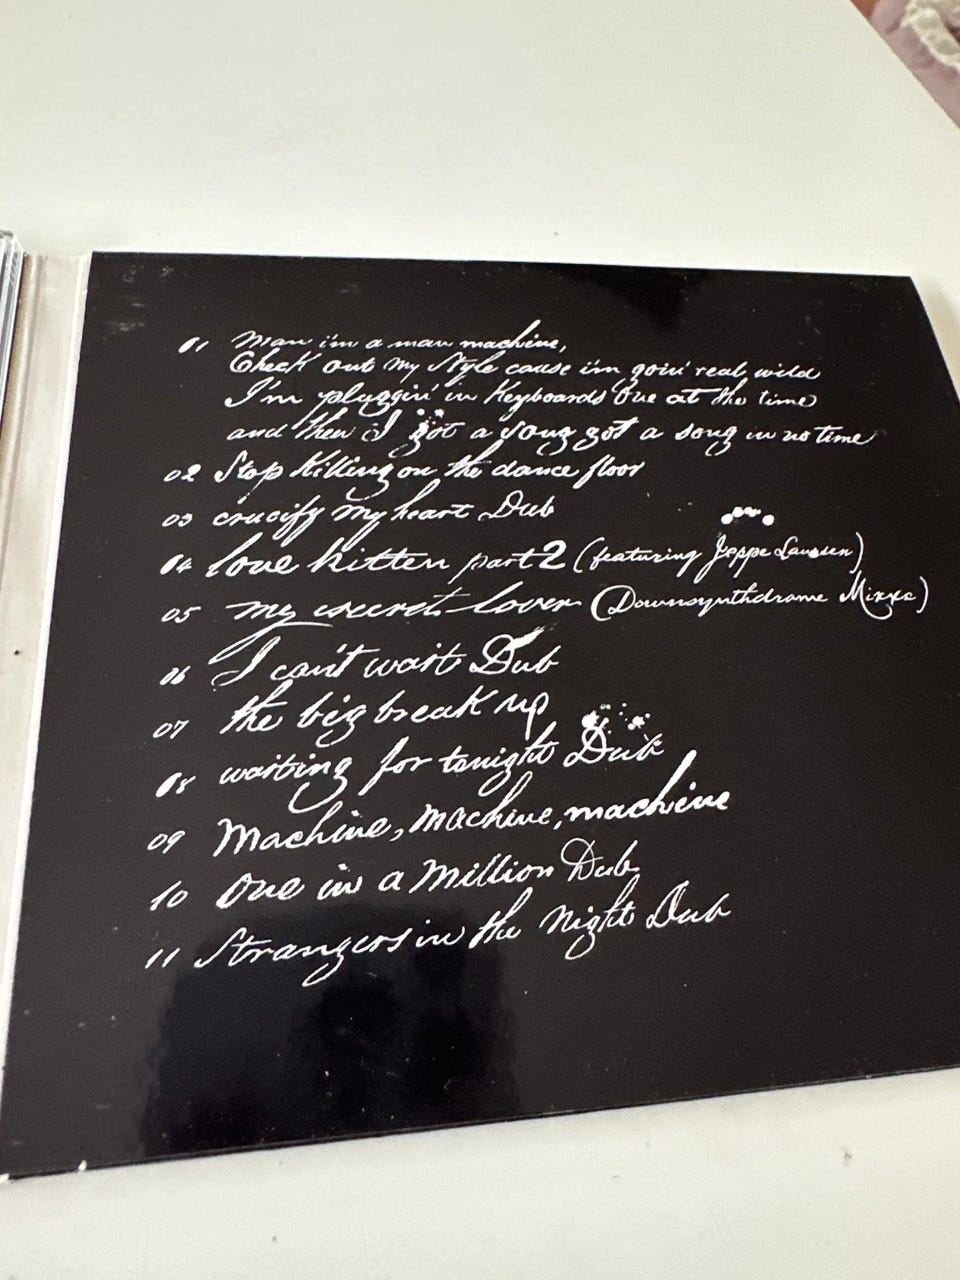 01 Man i'm a man machine,
Check out my style cause i'm goin' real wild
I'm pluggin' in keyboards one at the time
and then I got a song got a song in no time
02 Stop killing on the dance floor
03 crucify my heart Dub
04 love kitten part 2 (featuring Jeppe Laursen)
05 my secret lover (Downsynthdrome Mixxe)
06 I can't wait Dub
07 the big break up
08 waiting for tonight Dub
09 Machine, machine, machine
10 One in a Million Dub
11 Strangers in the night Dub